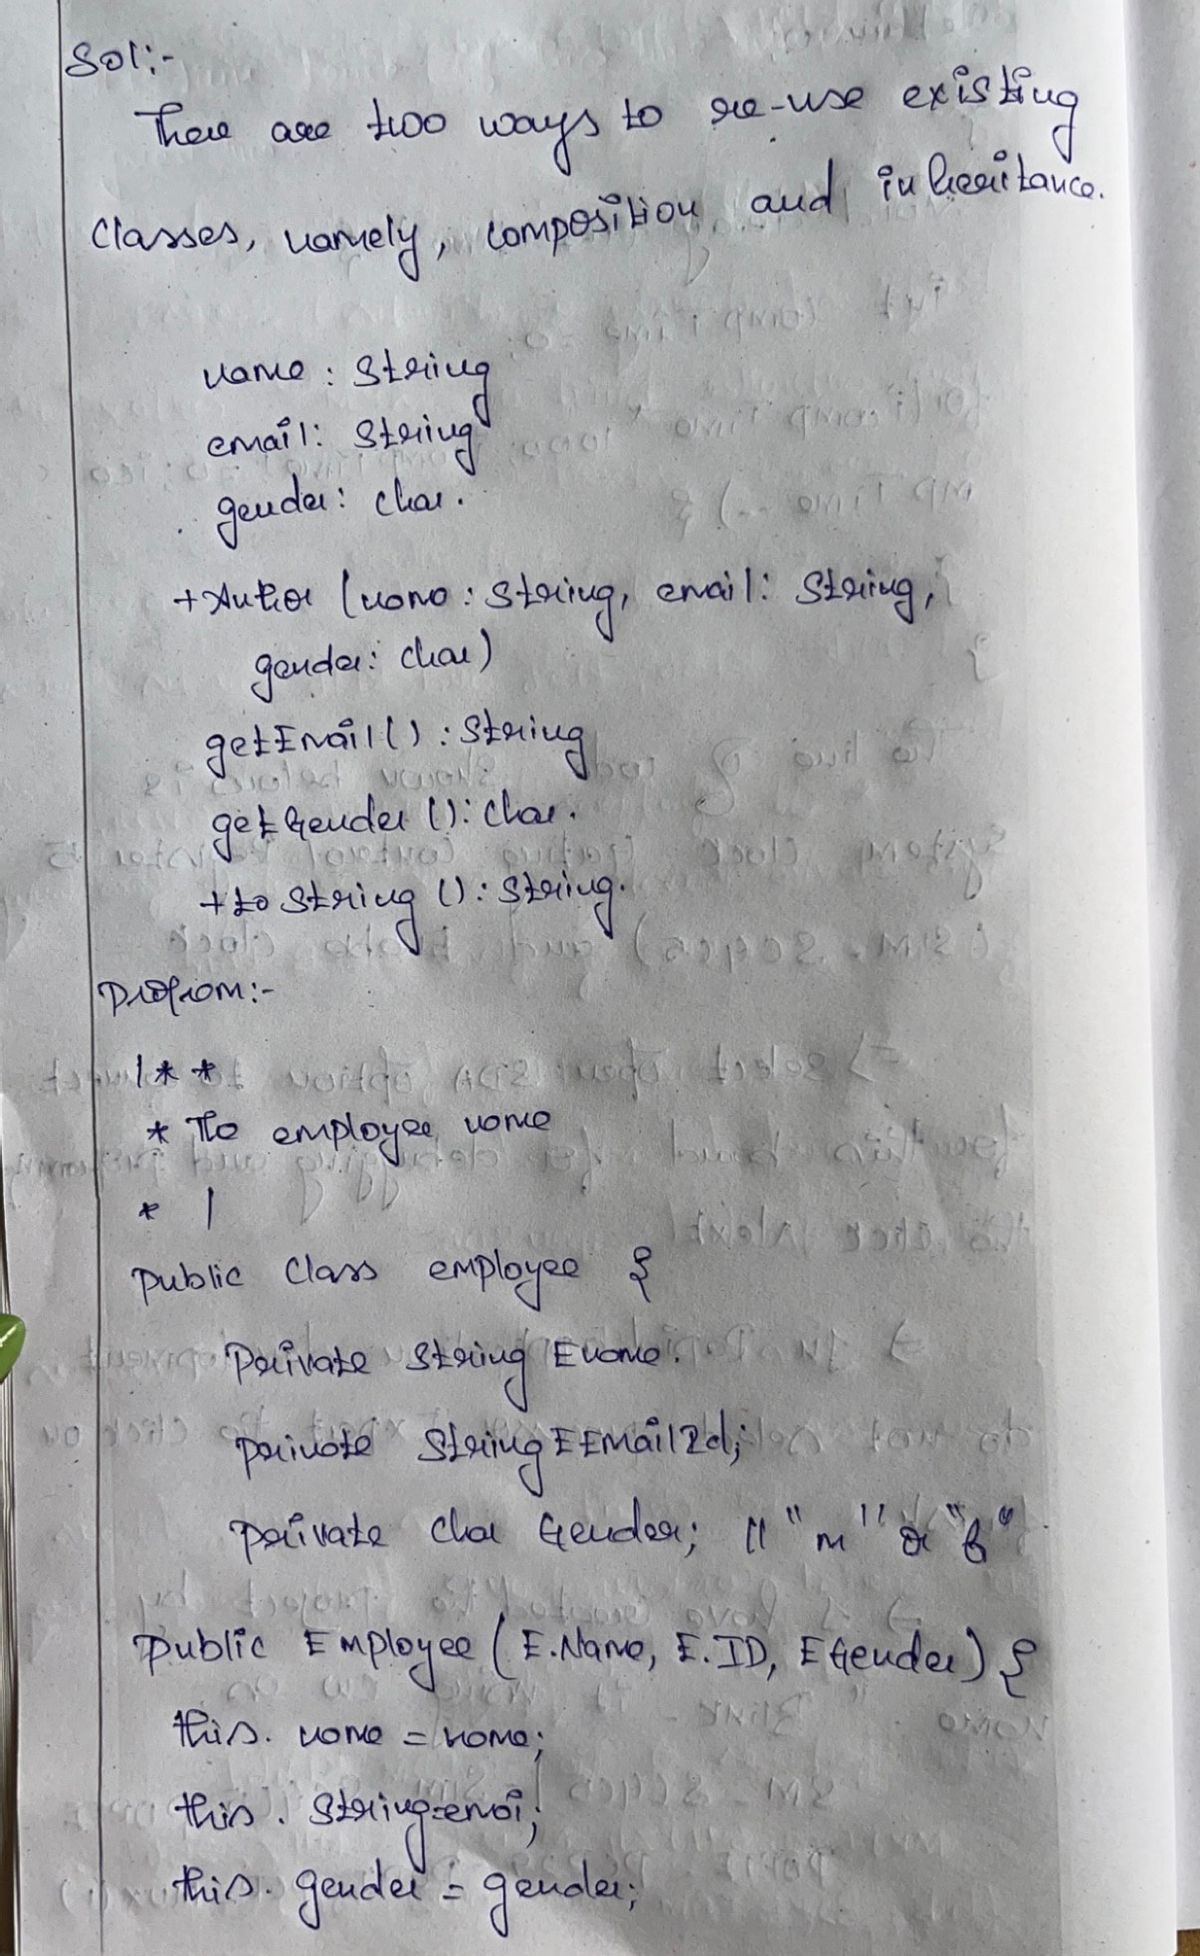 Sol:-
There are two ways to re-use existing
classes, namely, composition and inheritance.
name : String
email : String
gender : char.
+Author (name : String, email : String,
gender : char)
getEmail() : String
getGender () : char.
+to String () : String.
Program:-
/**
* The employee name
* /
public class employee {
Private String Ename.
private String EEmailId;
private char Gender; // "m" or "f"
Public Employee (E.Name, E.ID, EGender) {
this. name = name;
this . String=emai;
this. gender = gender;